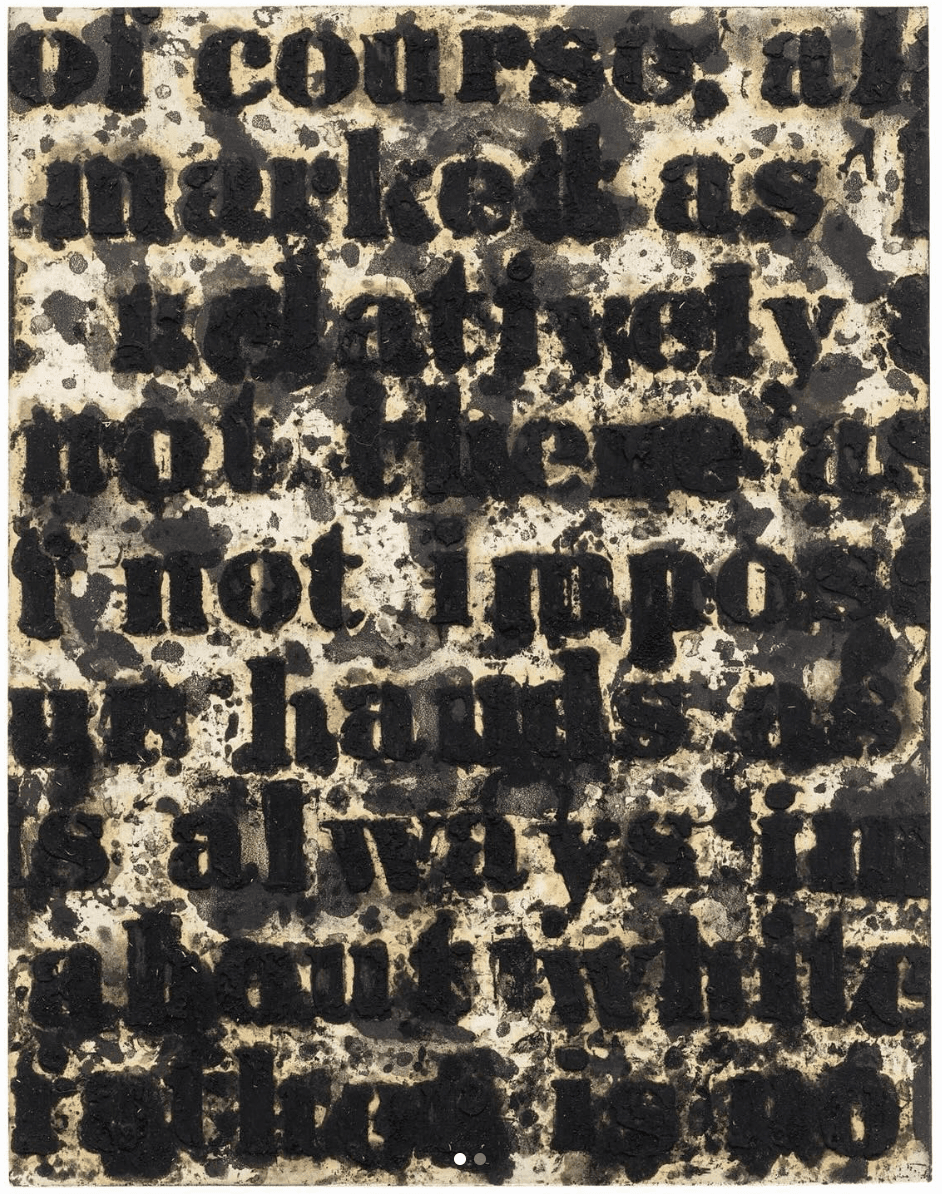 of course, al
marked as l
relatively
not there, as
t not impos
ur hands as
is always in
about white
is no